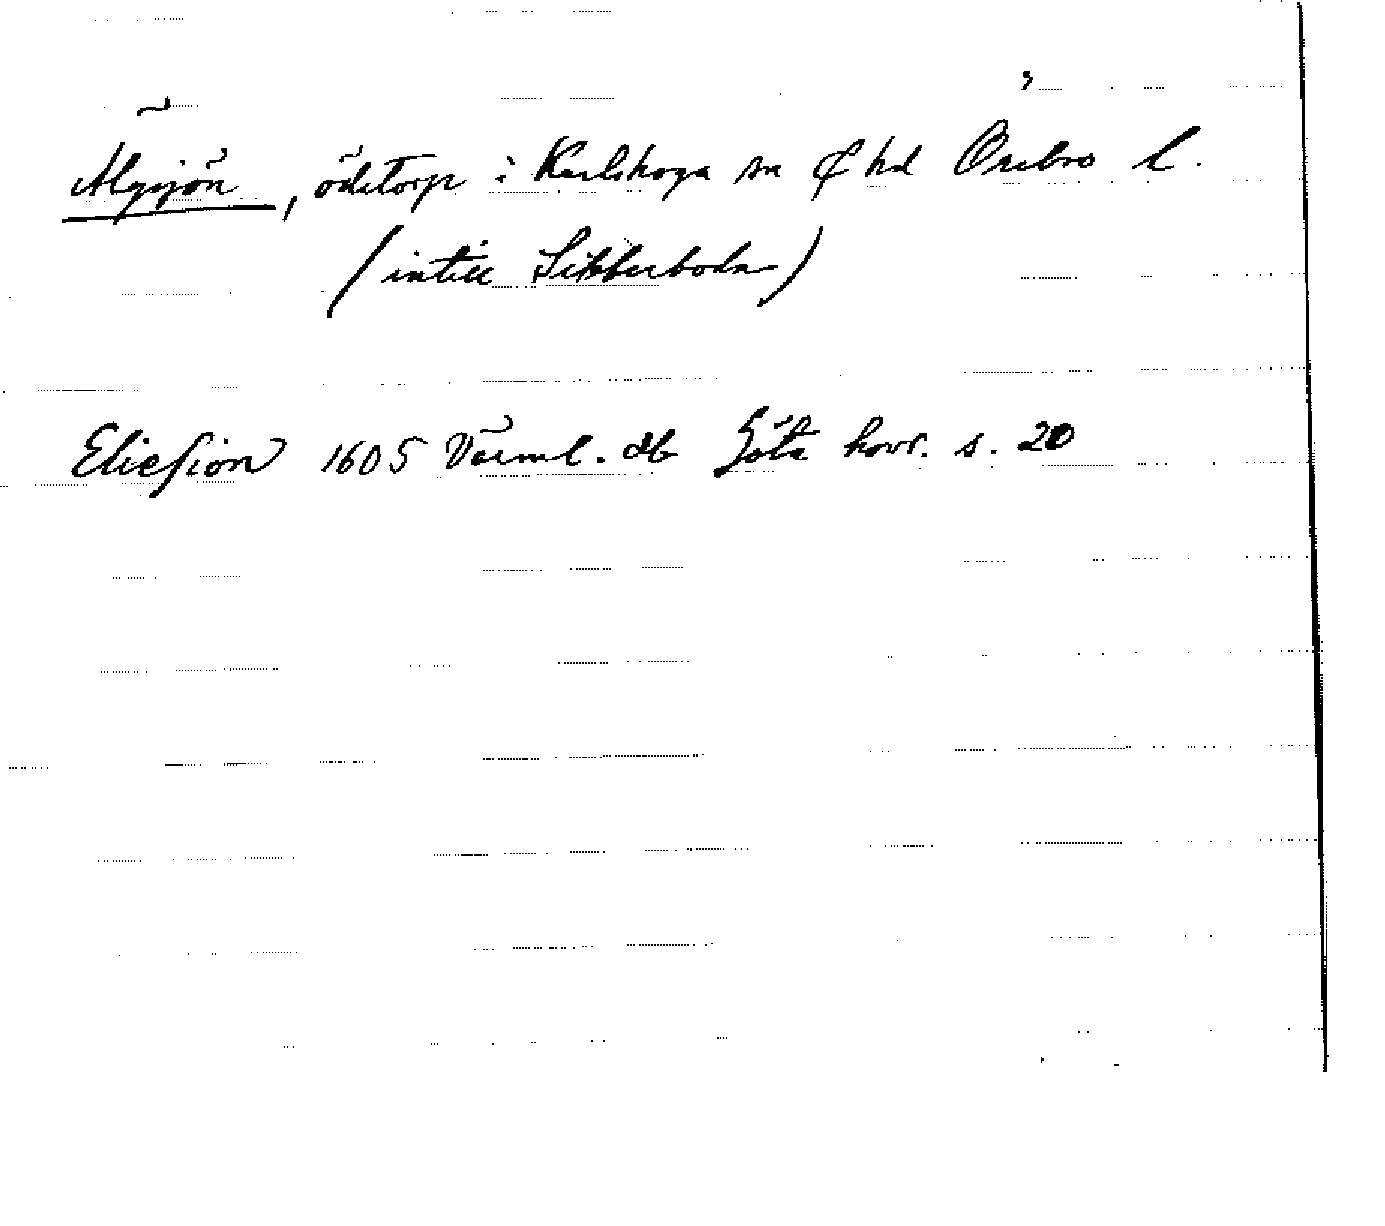 Älgsjön, ödetorp i Karlskoga sn o hd Örebro l.
(intill Sibberboda)
Eliesiön 1605 Värml. db Göta hovr. s. 20